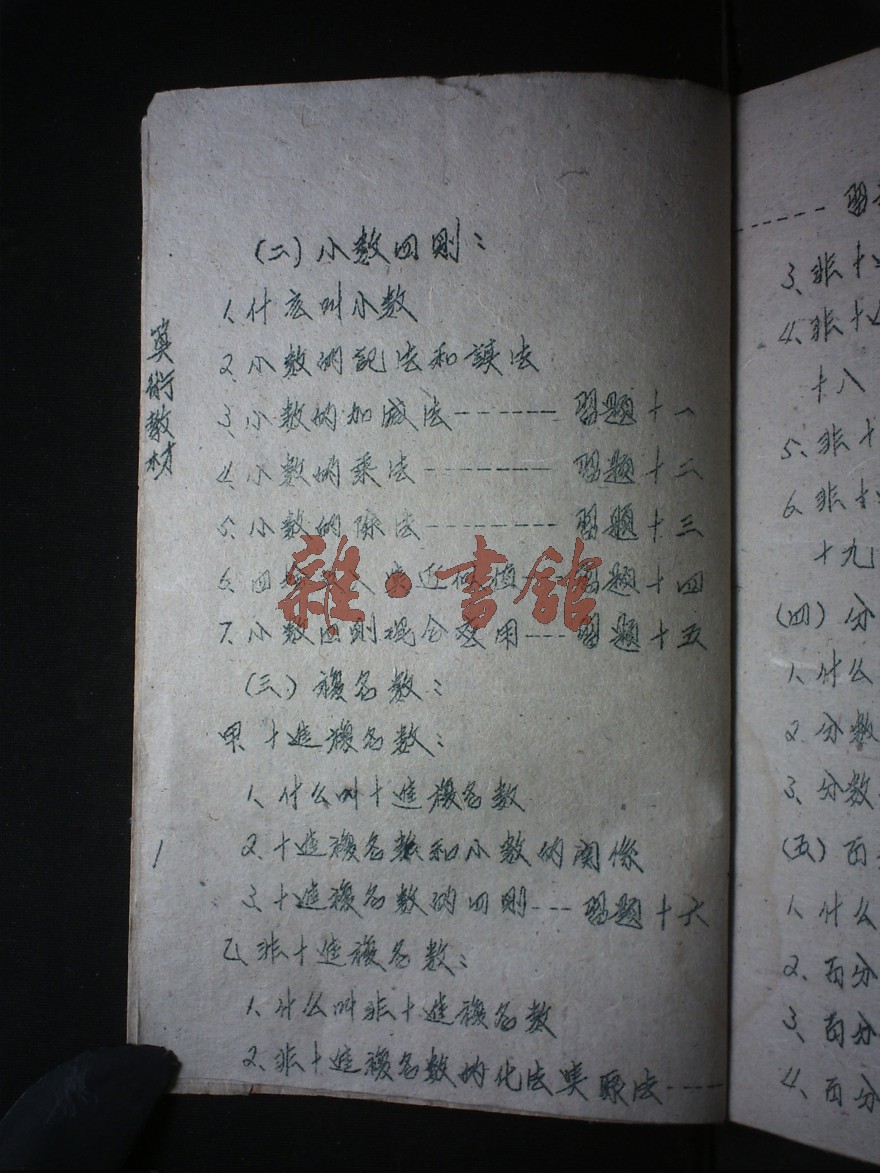 算術教材
1
(二)小数四则:
1、什庅叫小数
2、小数的記法和讀法
3、小数的加减法------習題十一
4、小数的乘法--------習題十二
5、小数的除法--------習題十三
6、四捨五入與近似值---習題十四
7、小数四则混合应用---習題十五
(三)複名数:
甲、十進複名数:
1、什么叫十進複名数
2、十進複名数和小数的関係
3、十進複名数的四则---習題十六
乙、非十進複名数:
1、什么叫非十進複名数
2、非十進複名数的化法與原法----
--------習
3、非十
4、非十
十八
5、非十
6、非十
十九
(四)分
1、什么
2、分数
3、分数
(五)百
1、什么
2、百分
3、百分
4、百分
雜·書館